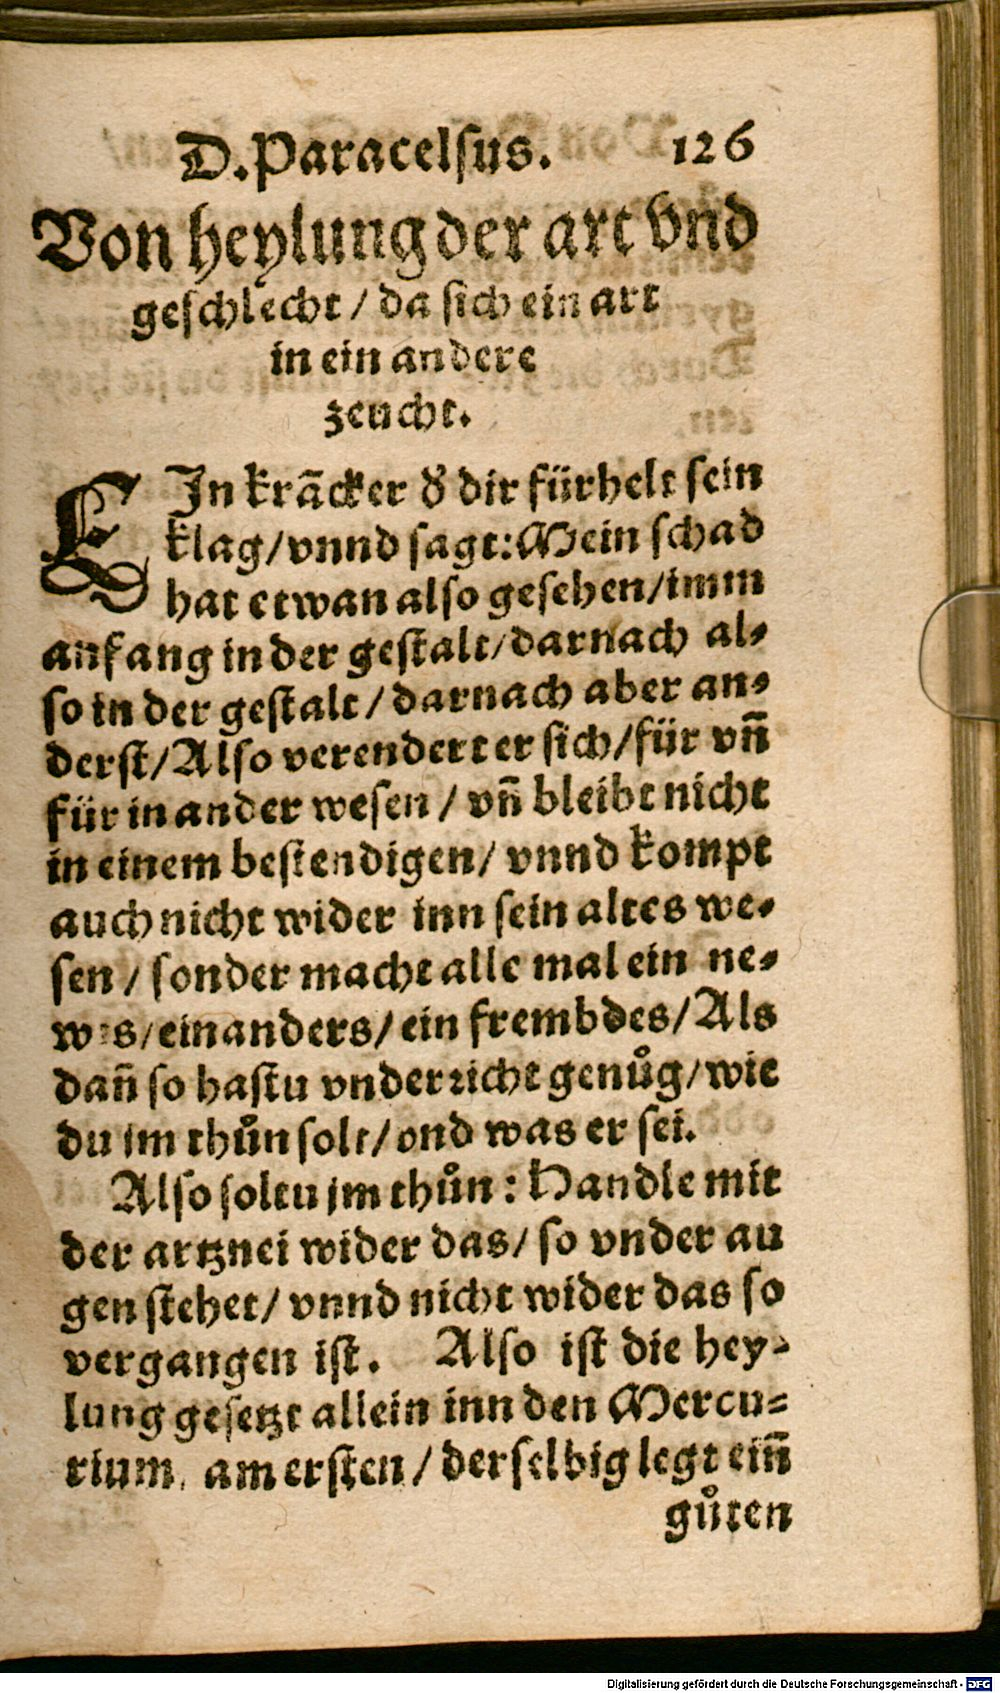 D. Paracelsus. 126
Von heylung der art vnd
geschlecht / da sich ein art
in ein andere
zeucht.
EIn krācker d̕ dir fürhelt sein
klag / vnnd sagt: Mein schad
hat etwan also gesehen / imm
anfang in der gestalt / darnach al⸗
so in der gestalt / darnach aber an⸗
derst / Also verendert er sich / für vñ
für in ander wesen / vñ bleibt nicht
in einem bestendigen / vnnd kompt
auch nicht wider inn sein altes we⸗
sen / sonder macht alle mal ein ne⸗
wes / ein anders / ein frembdes / Als
dañ so hastu vnderricht genůg / wie
du jm thůn solt / vnd was er sei.
Also soltu jm thůn: Handle mit
der artznei wider das / so vnder au
gen stehet / vnnd nicht wider das so
vergangen ist. Also ist die hey⸗
lung gesetzt allein inn den Mercu⸗
rium, am ersten / derselbig legt eiñ
gůten
Digitalisierung gefördert durch die Deutsche Forschungsgemeinschaft - DFG